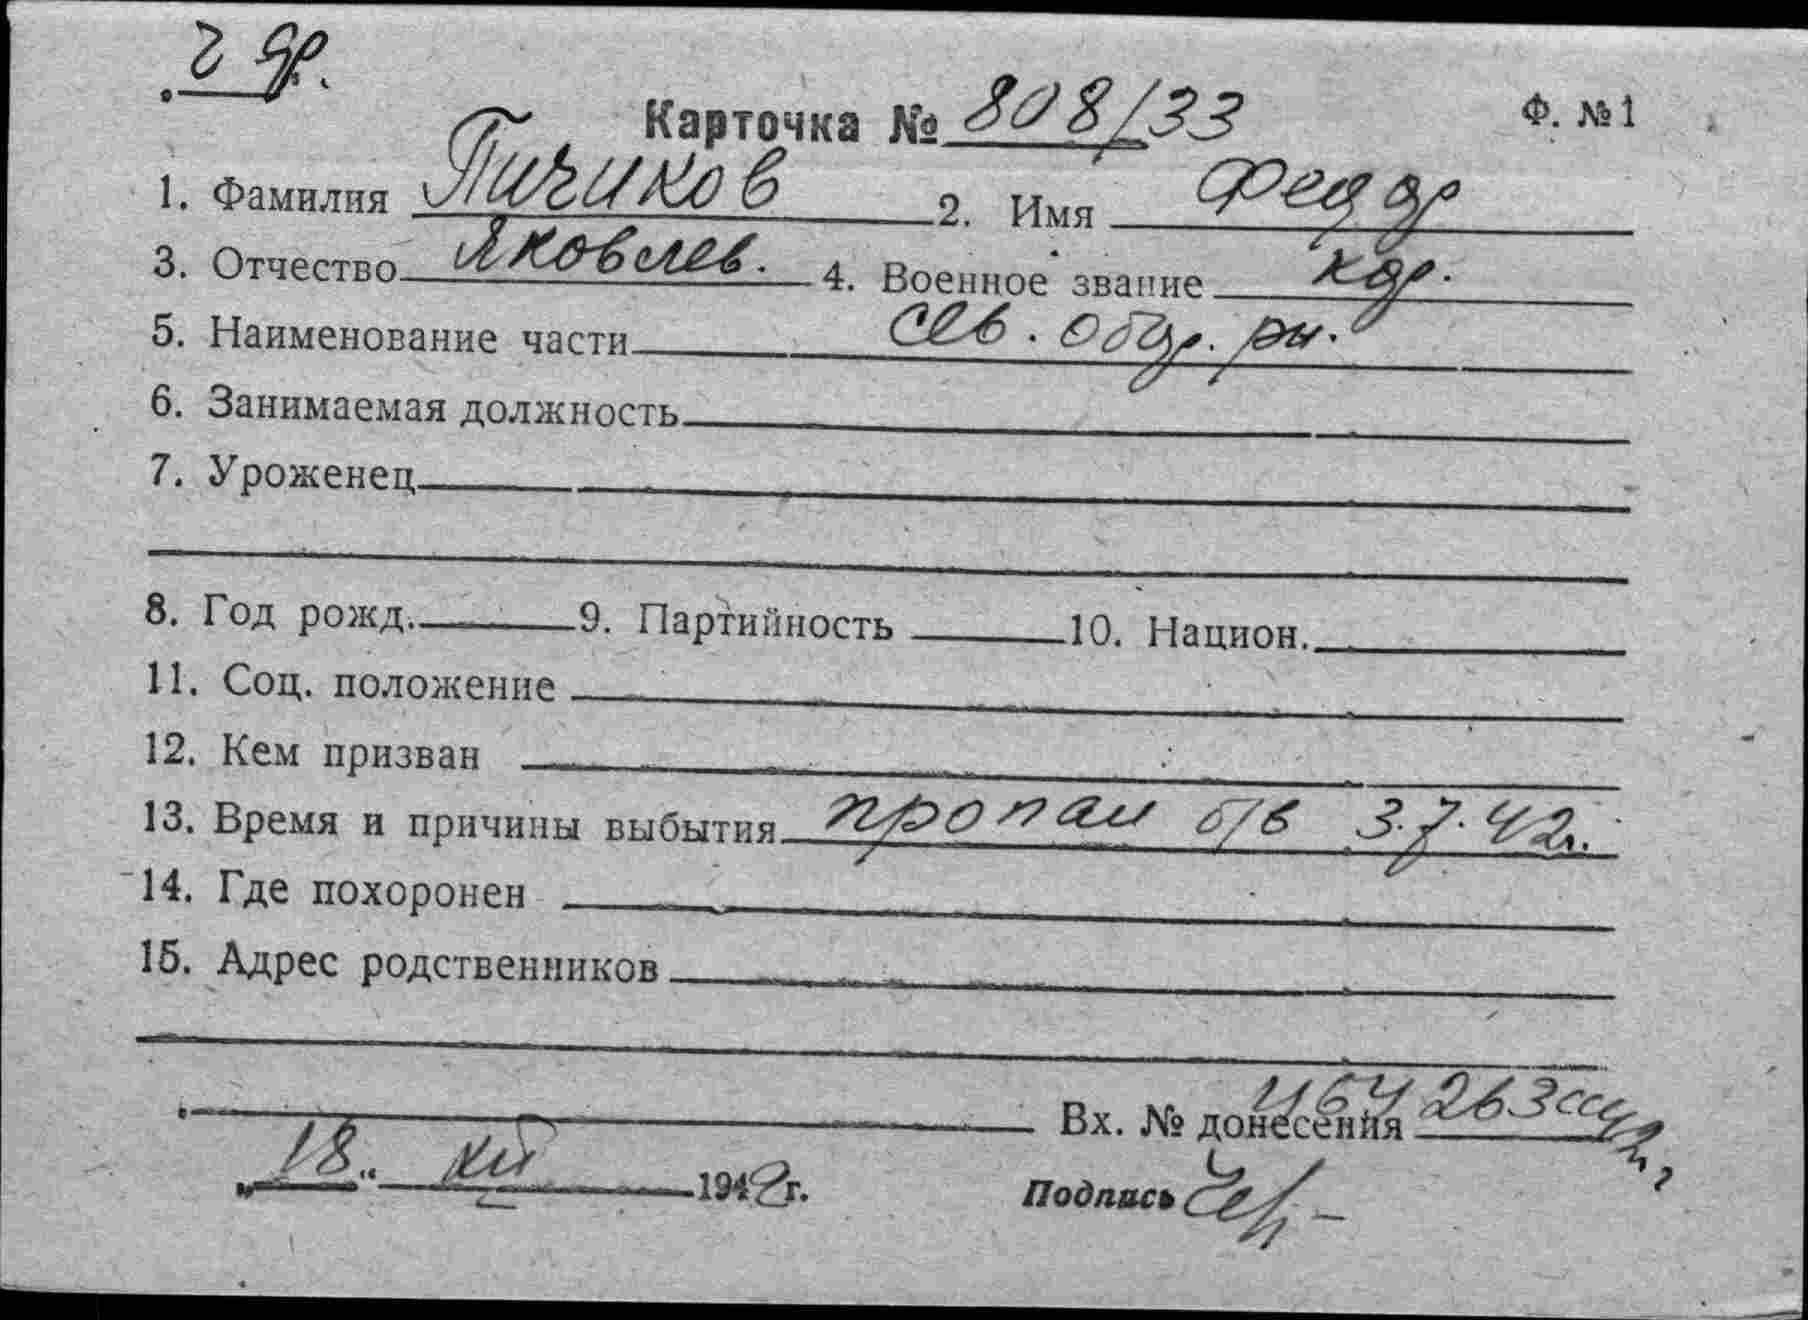 Карточка № 808/33 Ф. №1
1. Фамилия Пичиков 2. Имя Федор
3. Отчество Яковлев. 4. Военное звание кр.
5. Наименование части сев. обор. рн.
6. Занимаемая должность
7. Уроженец
8. Год рожд. 9. Партийность 10. Национ.
11. Соц. положение
12. Кем призван
13. Время и причины выбытия пропал б/в 3.7.42г.
14. Где похоронен
15. Адрес родственников
Вх. № донесения
„18“ XII 1942г. Подпись